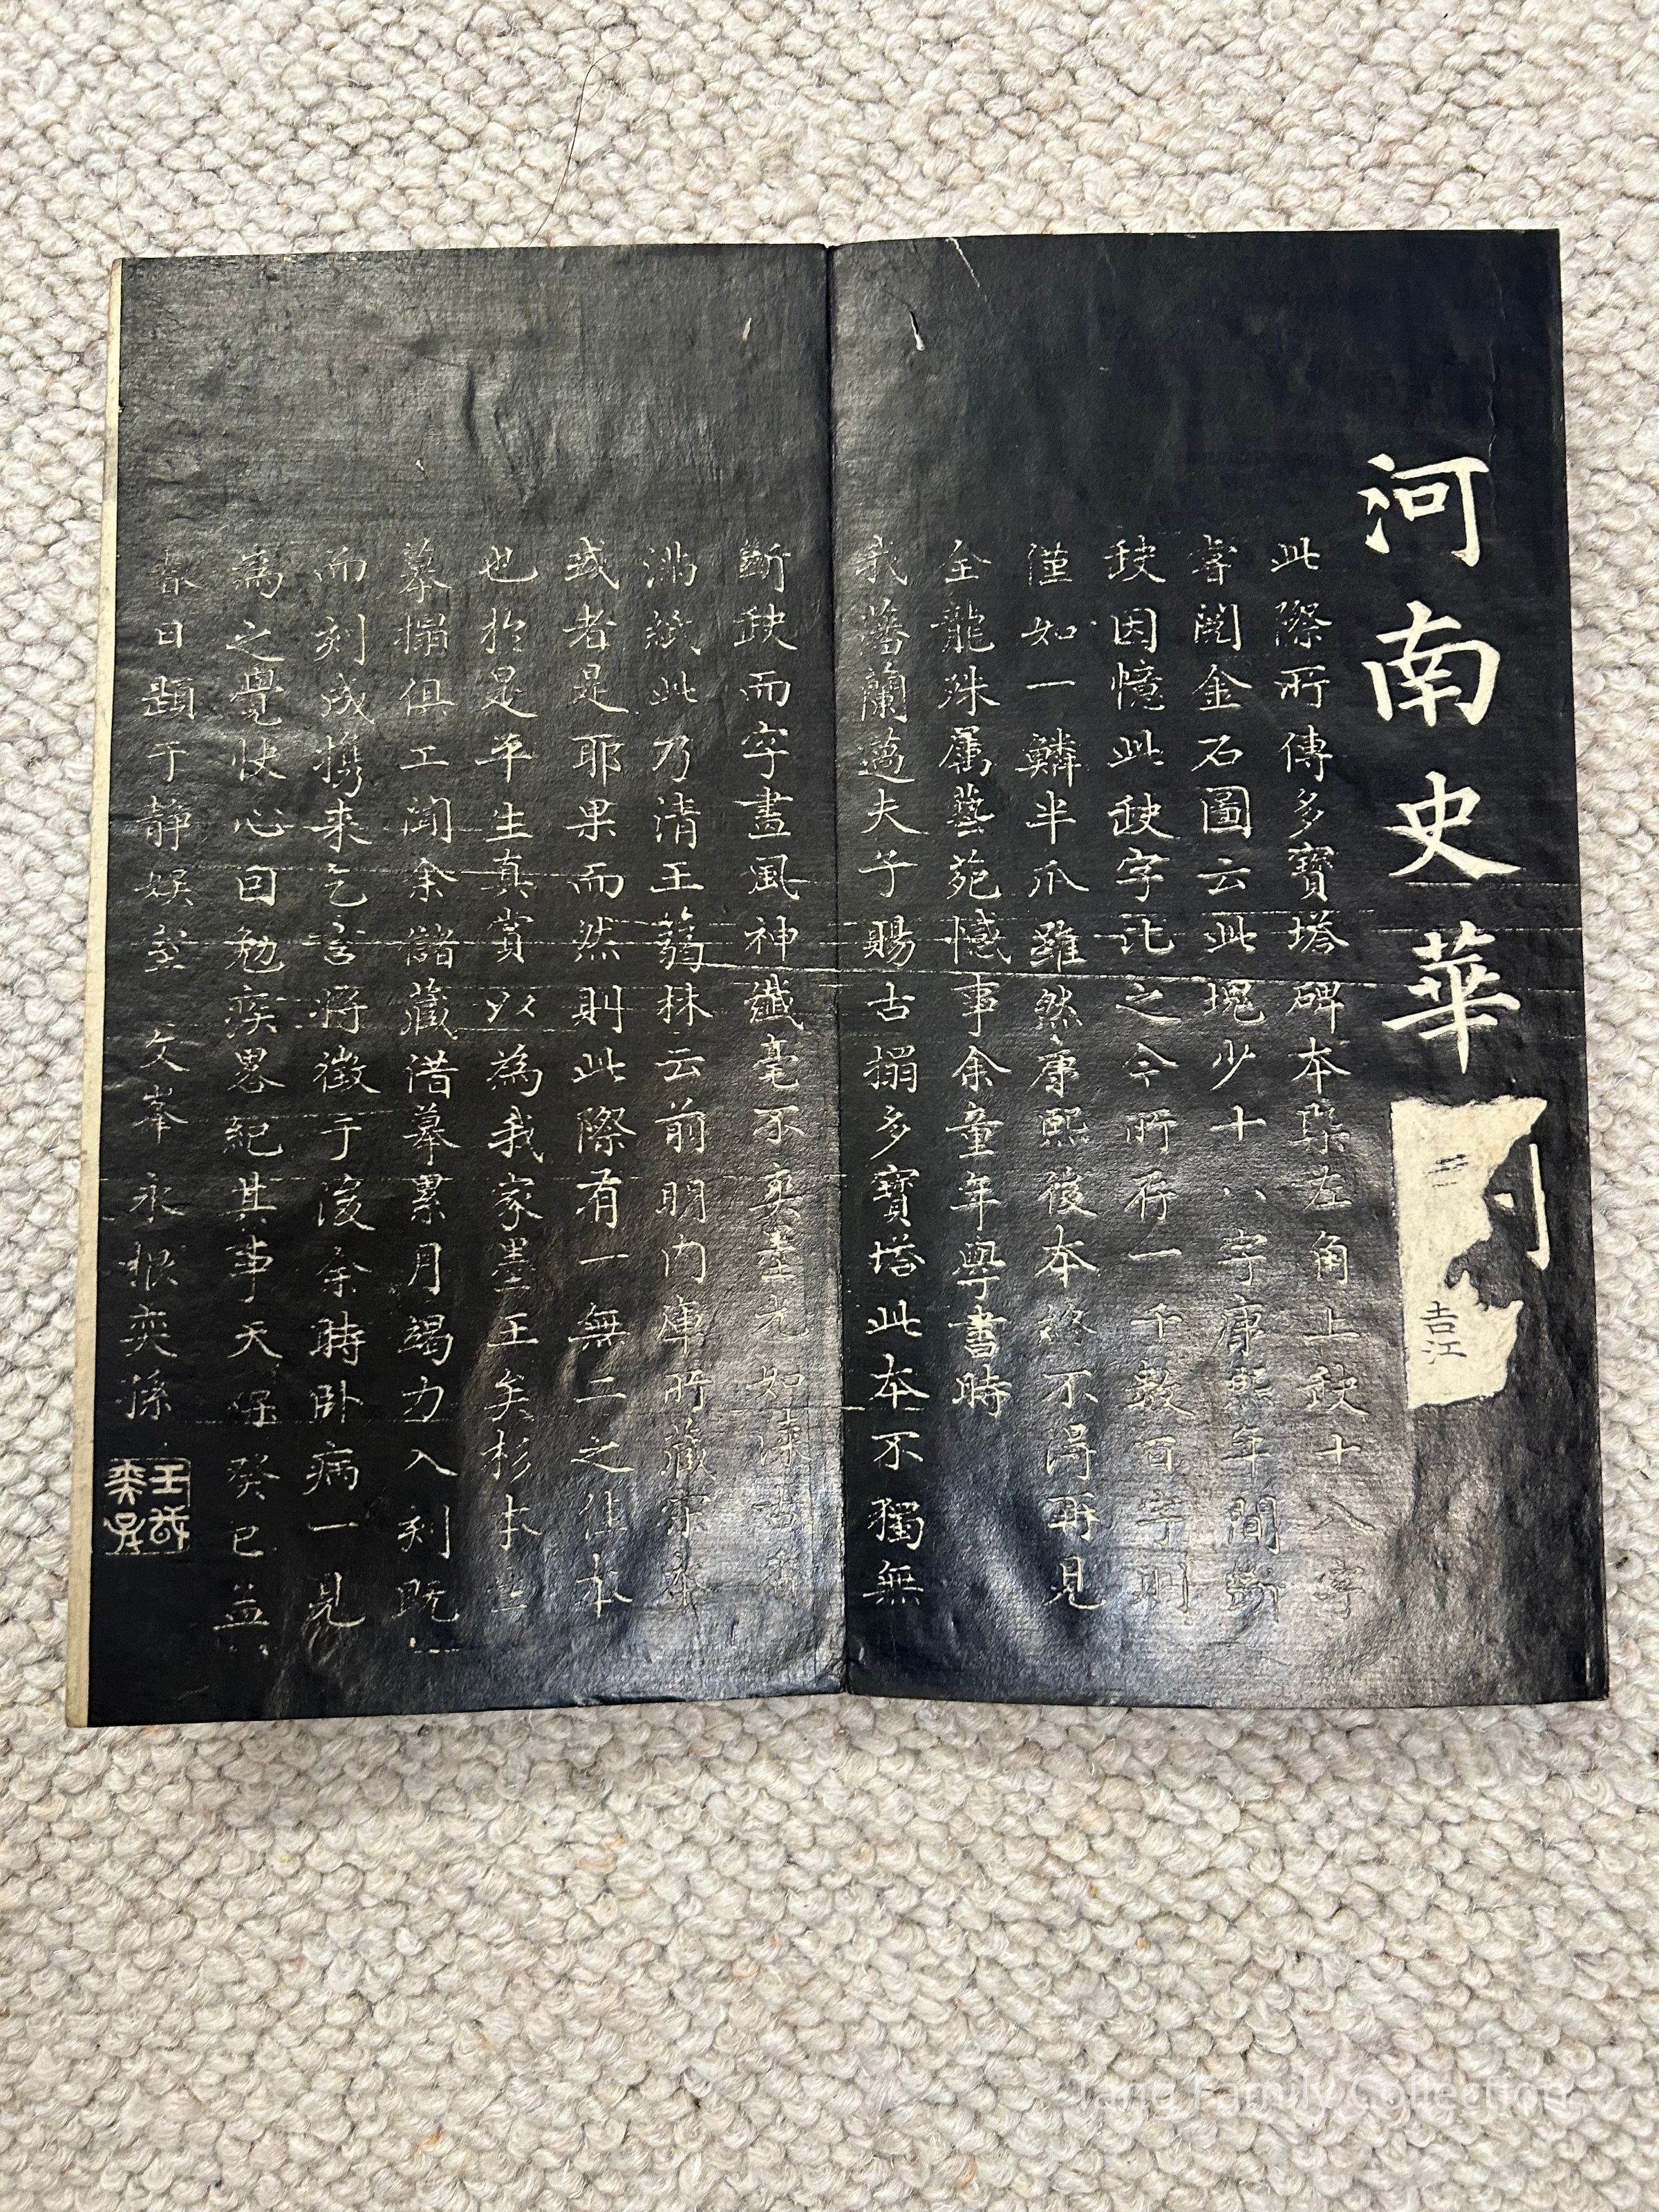 河南史華刻
吉江
此際所傳多寶塔碑本槩左角上缺十八字
嘗閲金石圖云此塊少十八字康熙年間斷
缺因憶此缺字訛之今所行一千數百字則
僅如一鱗半爪雖然康熙後本終不得再見
全龍殊属藝苑憾事余童年學書時
我藩蘭邁夫子賜古搨多寶塔此本不獨無
斷缺而字畫風神纖毫不爽墨光如漆古香
滿紙此乃清王蒻林云前明内庫所藏宋本
或者是耶果而然則此際有一無二之佳本
也於是平生真賞以為我家墨王矣杉本
摹搨俱工聞余儲藏借摹累月竭力入刻既
而刻成携来乞言将徵于後余時卧病一見
為之覺快心目勉疾畧紀其事天保癸巳孟
春日題于静娯室 文峯 永根奕孫
王氏奕孫
Tang Family Collection